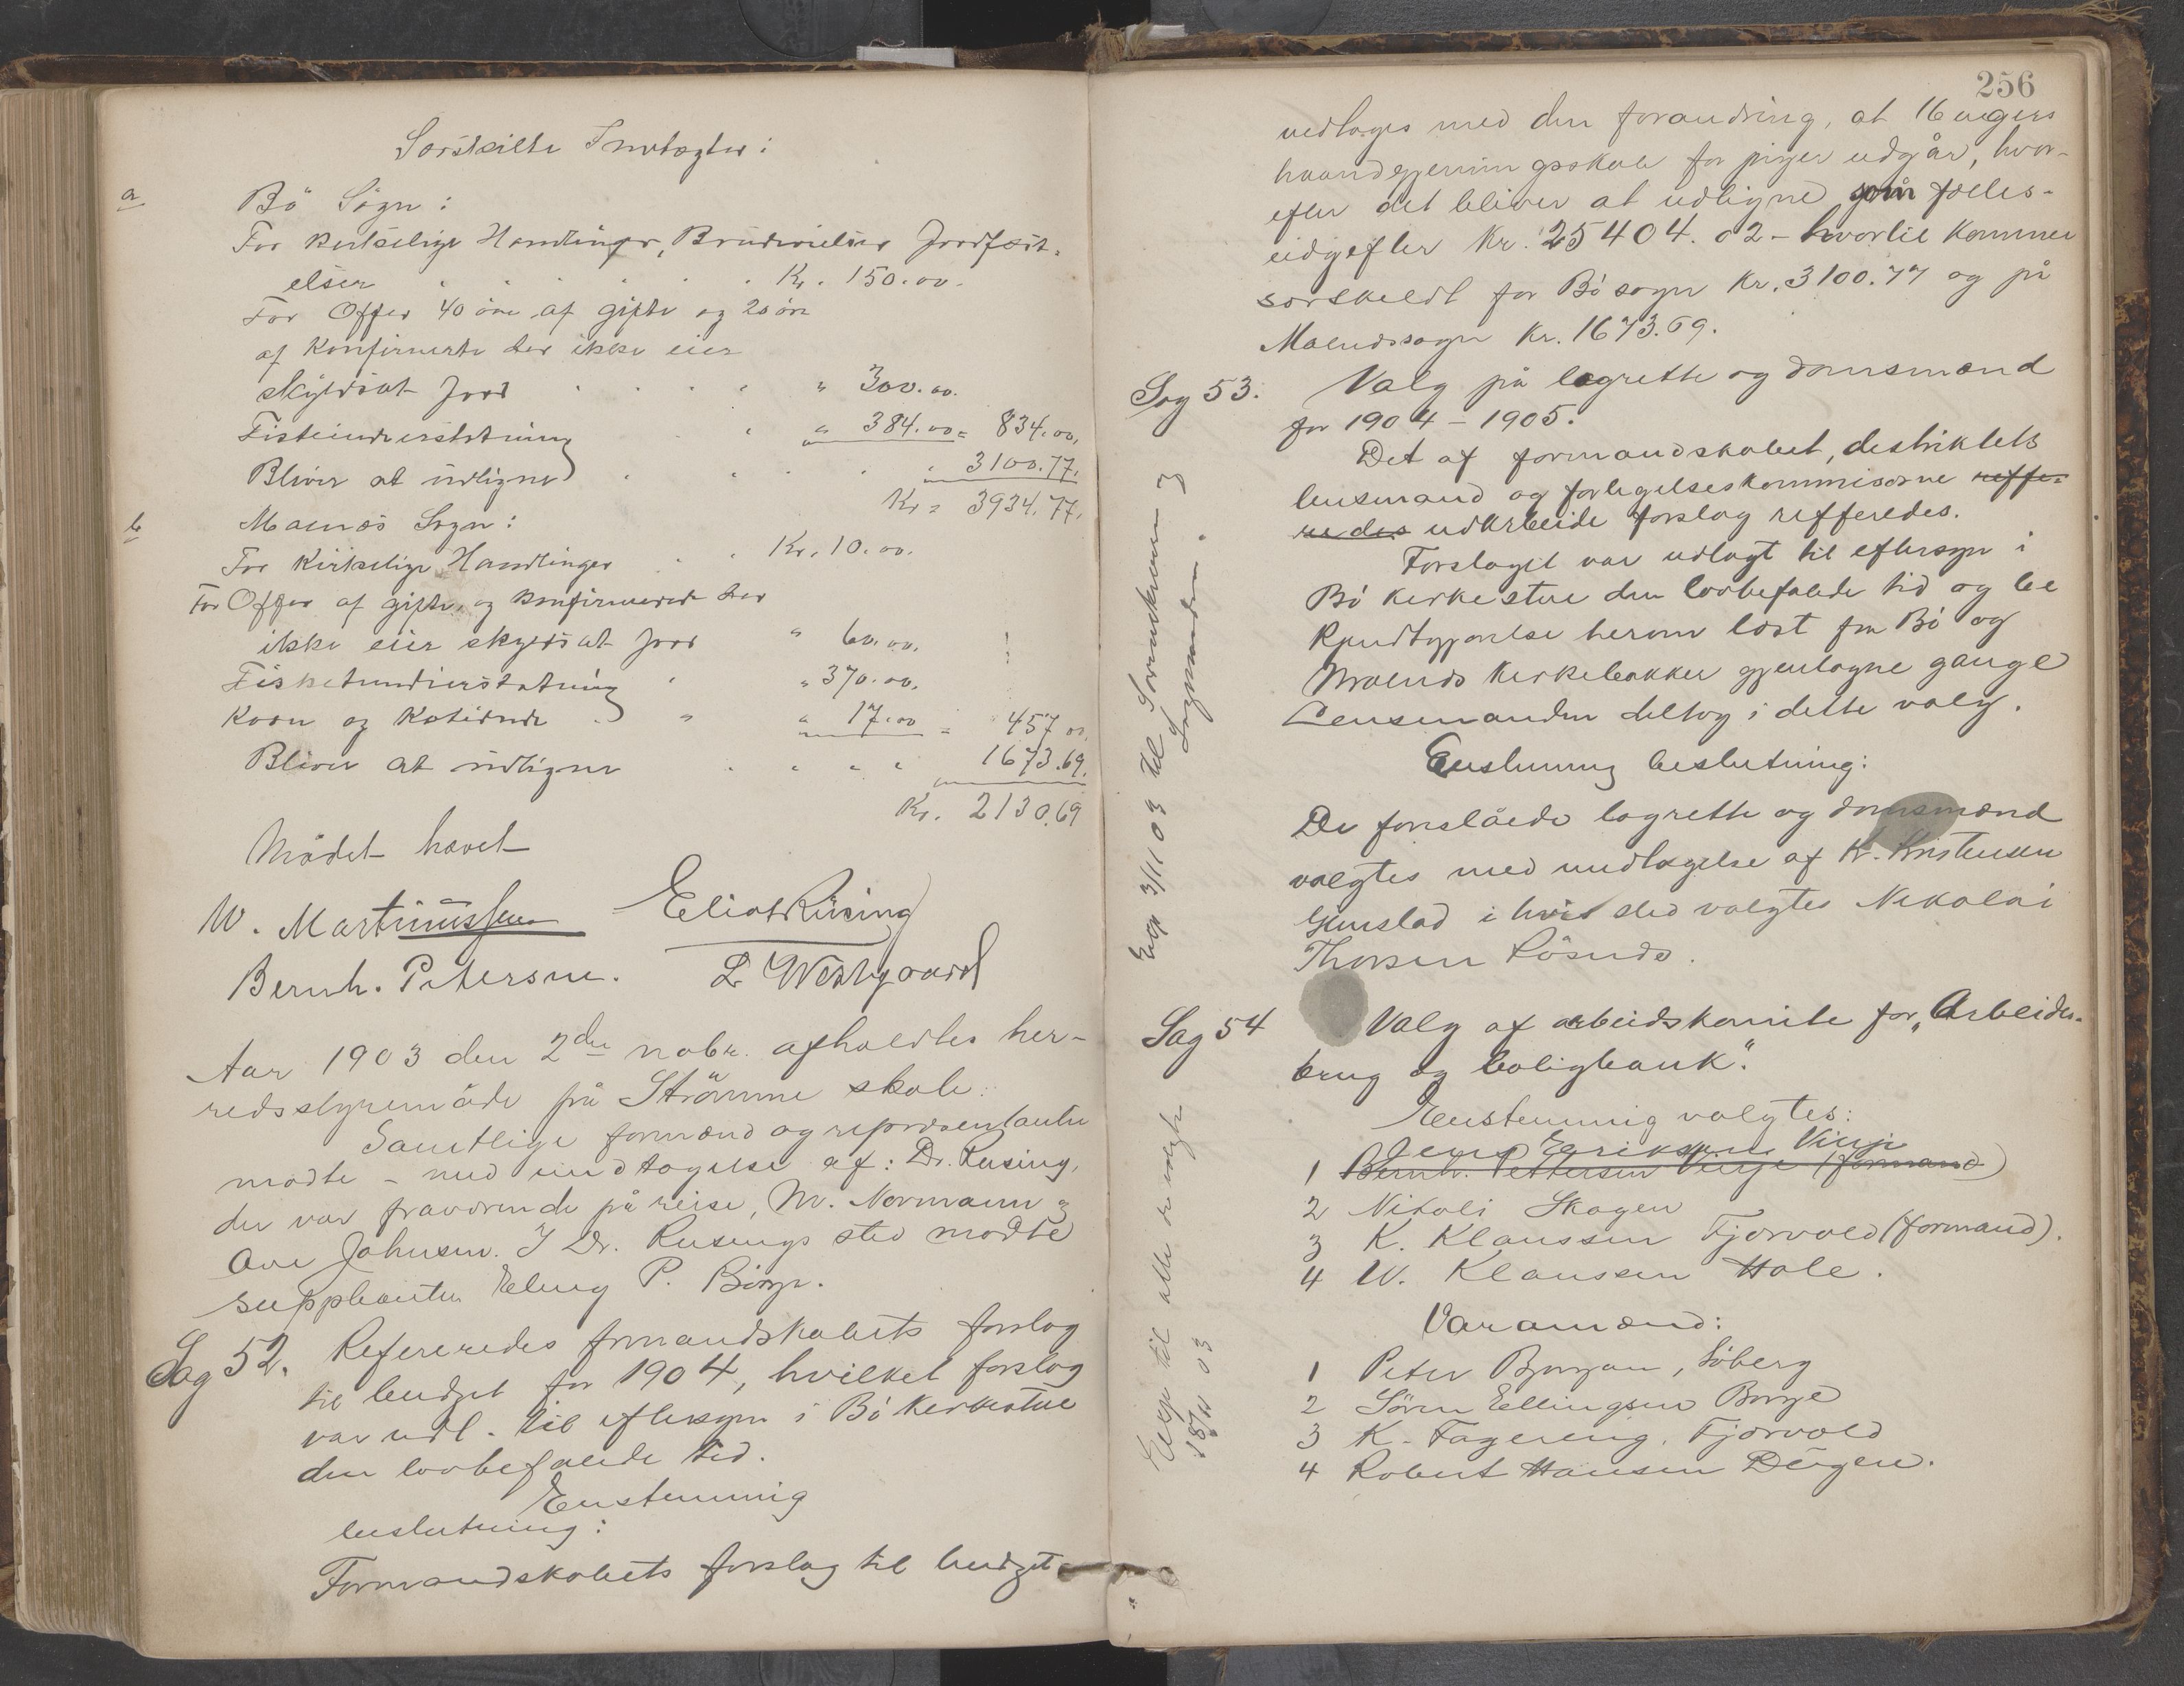 Særskilte Indtægter:
a Bö Sogn:
For kirkelige Handlinger, Brudevielser Jordfæst-
elser . . . . . . Kr. 150.00.
For Offer 40 öre af gifte og 20 öre
af Konfirmerte der ikke eier
skyldsat Jord . . . . " 300.00.
Fisketiendeerstatning . . " 384.00 = 834.00.
Bliver at udligne . . . . . 3100.77.
Kr. 3934.77.
b Malnæs Sogn:
For Kirkelige Handlinger . . Kr. 10.00.
For Offer af gifte og konfirmerede der
ikke eier skyldsat Jord " 60.00.
Fisketiendeerstatning " " 370.00.
Korn og Kotiende . " " 17.00 = 457.00.
Bliver at udligne . . . . 1673.69.
Kr. 2130.69
Mödet hævet
W. Martinussen Eliot Rüsing
Bernh. Petersen. L Westgaard
Aar 1903 den 2den nobr. afholdtes her-
redsstyremöde på Strömme skole.
Samtlige formænd og repræsentanter
mödte – med undtagelse af: Dr. Rusing,
der var fraværende på reise, M. Normann og
Ove Johnsen. I Dr. Rusings sted mödte
suppleanten Elling P. Börge.
Sag 52. Refereredes formandskabets forslag
til budget for 1904, hvilket forslag
var udl. til eftersyn i Bö kirkestue
den lovbefalede tid.
Enstemmig
beslutning:
Formandskabets forslag til budget
256
vedtages med den forandring, at 16 ugers
haandgjerningsskole for piger udgår, hvor-
efter det bliver at udligne som fælles-
udgifter Kr. 25404.02 – hvortil kommer
særskildt for Bö sogn Kr. 3100.77 og på
Malnæssogn Kr. 1673.69.
Sag 53. Valg på lagrette og domsmænd
for 1904 – 1905.
Det af formandskabet, destriktets
lensmand og forligelseskommisærne reffe-
redes udarbeide forslag refferedes.
Forslaget var udlagt til eftersyn i
Bö kirkestue den lovbefalede tid og be
kjendtgjörelse herom læst fra Bö og
Malnæs kirkebakker gjentagne gange
Lensmanden deltog i dette valg.
Enstemmig beslutning:
De foreslåede lagrette og domsmænd
valgtes med undtagelse af K. Kristensen
Guvslad i hvis sted valgtes Nikolai
Thorsen Rösnes.
Sag 54 Valg af arbeidskomite for „Arbeider-
brug og boligbank".
Enstemmig valgtes:
Jens Eriksen Vinje
1 Bernh. Pettersen Vinje (formand)
2 Nikoli Skagen
3 K. Klaussen Fjærvold (formand).
4 W. Klaussen Hole.
Varamænd:
1 Peter Bjørgan, Söberg
2 Sören Ellingsen Börge
3 K. Fagereng, Fjærvold
4 Robert Hansen Deigen.
Exp 3/11 03 til Sorenskriveren og
Lagmanden.
Exp til alle de valgte
18/11 03